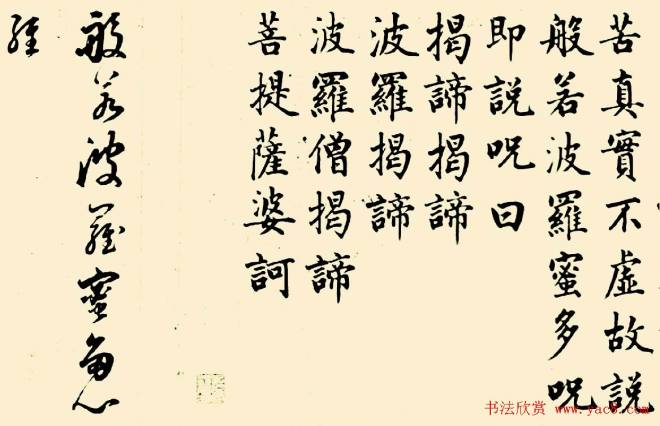 苦真實不虛故說
般若波羅蜜多呪
即說呪曰
揭諦揭諦
波羅揭諦
波羅僧揭諦
菩提薩婆訶
般若波羅蜜多心
經
书法欣赏 www.yac8.com